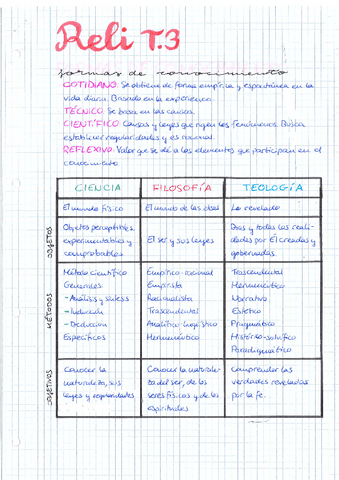 Reli T.3
formas de conocimiento
COTIDIANO. Se obtiene de forma empírica y espontánea en la
vida diaria. Basado en la experiencia.
TÉCNICO. Se basa en las causas.
CIENTÍFICO. Causas y leyes que rigen los fenómenos. Busca
establecer regularidades y es racional.
REFLEXIVO. Valor que se dá a los elementos que participan en el
conocimiento
CIENCIA FILOSOFÍA TEOLOGÍA
OBJETOS
El mundo físico
El mundo de las ideas
Lo revelado
Objetos perceptibles,
experimentables y
comprobables.
El ser y sus leyes
Dios y todas las reali-
dades por Él creadas y
gobernadas.
MÉTODOS
Método científico
Generales
- Análisis y síntesis
- Inducción
- Deducción
Específicos
Empírico-racional
Empirista
Racionalista
Trascendental
Analítico-lingüístico
Hermenéutico
Trascendental
Hermenéutico
Narrativo
Estético
Pragmático
Histórico-salvífico
Paradigmático
OBJETIVOS
Conocer la
naturaleza, sus
leyes y regularidades
Conocer la naturale-
za del ser, de los
seres físicos y de los
espirituales
Comprender las
verdades reveladas
por la fe.